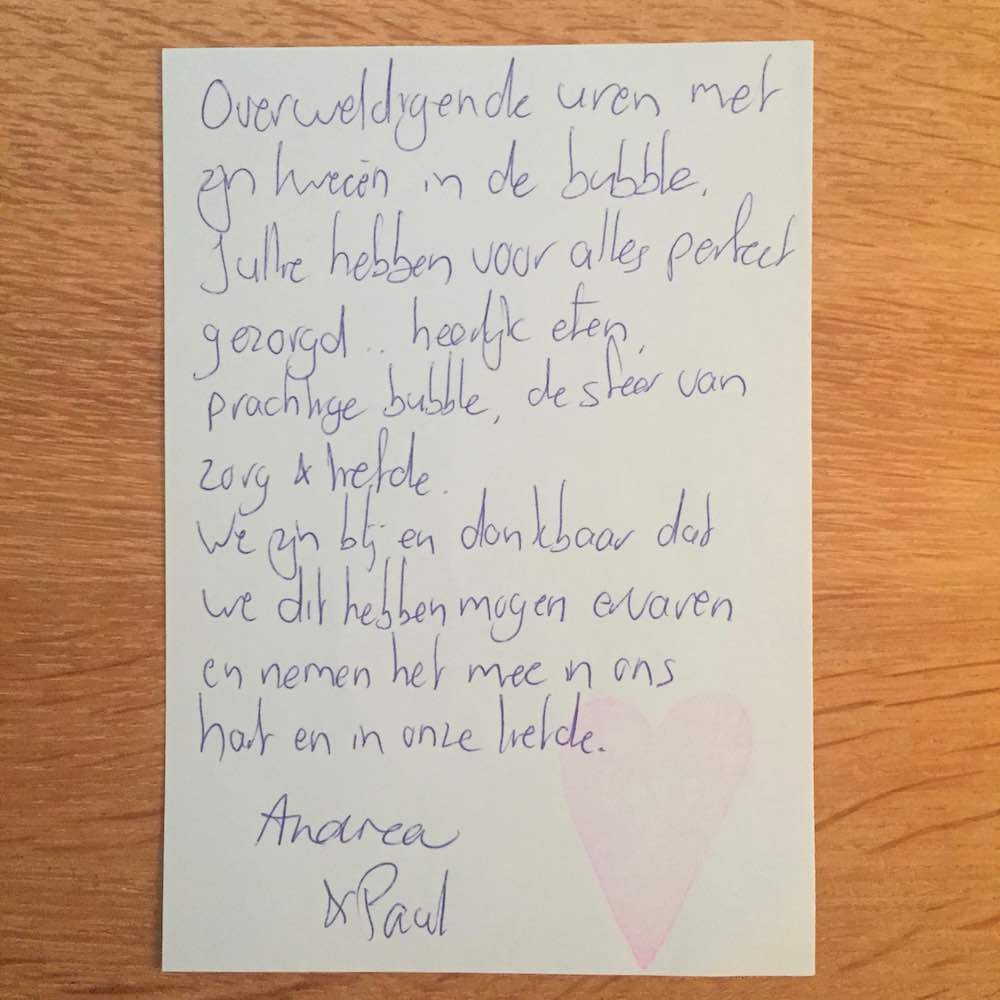 Overweldigende uren met
zijn tweeën in de bubble.
Jullie hebben voor alles perfect
gezorgd .. heerlijk eten,
prachtige bubble, de sfeer van
zorg & liefde.
We zijn blij en dankbaar dat
we dit hebben mogen ervaren
en nemen het mee in ons
hart en in onze liefde.
Andrea
& Paul